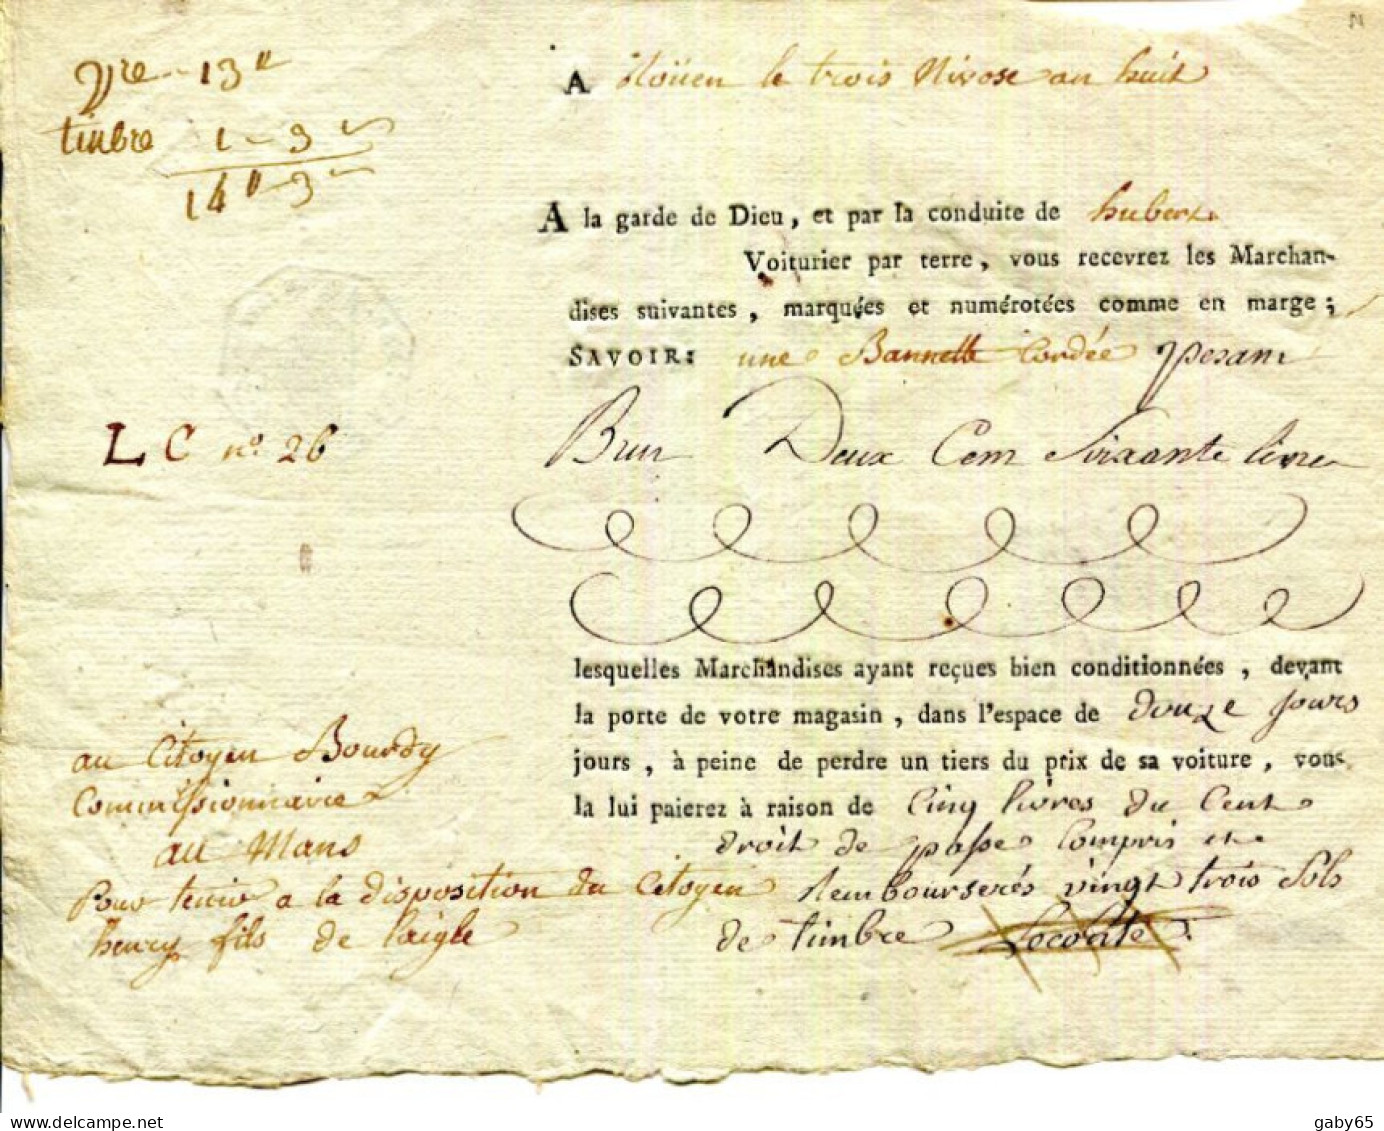 vre - 13"
timbre 1 - 3
14" - 3
A Roüen le trois Nivose an huit
A la garde de Dieu, et par la conduite de hubert
Voiturier par terre, vous recevrez les Marchan-
dises suivantes, marquées et numérotées comme en marge;
SAVOIR: une Bannette Cordée pesant
L C n° 26
Brut Deux Cent Soixante livres
lesquelles Marchandises ayant reçues bien conditionnées, devant
la porte de votre magasin, dans l'espace de douze jours
jours, à peine de perdre un tiers du prix de sa voiture, vous
la lui paierez à raison de Cinq livres du Cent
droit de passe Compris et
Rembourserés vingt trois Sols
de timbre
au Citoyen Bourdy
Commissionnaire
au Mans
Pour tenir a la disposition du Citoyen
henry fils de Laigle
gaby65